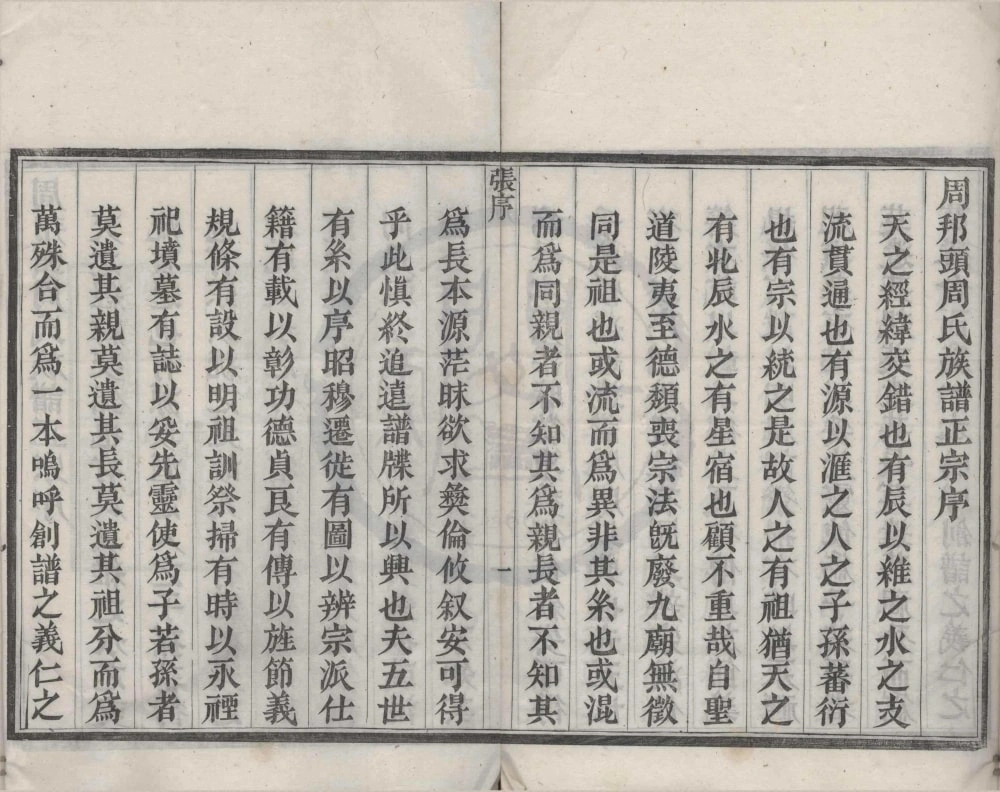 周邦頭周氏族譜正宗序
天之經緯交錯也有辰以維之水之支
流貫通也有源以滙之人之子孫蕃衍
也有宗以統之是故人之有祖猶天之
有北辰水之有星宿也顧不重哉自聖
道陵夷至德頽喪宗法旣廢九廟無徵
同是祖也或流而爲異非其糸也或混
而爲同親者不知其爲親長者不知其
張序
一
爲長本源茫昧欲求彜倫攸叙安可得
乎此愼終追遠譜牒所以興也夫五世
有糸以序昭穆遷徙有圖以辨宗派仕
籍有載以彰功德貞良有傳以旌節義
規條有設以明祖訓祭掃有時以永禋
祀墳墓有誌以妥先靈使爲子若孫者
莫遺其親莫遺其長莫遺其祖分而爲
萬殊合而爲一本嗚呼創譜之義仁之